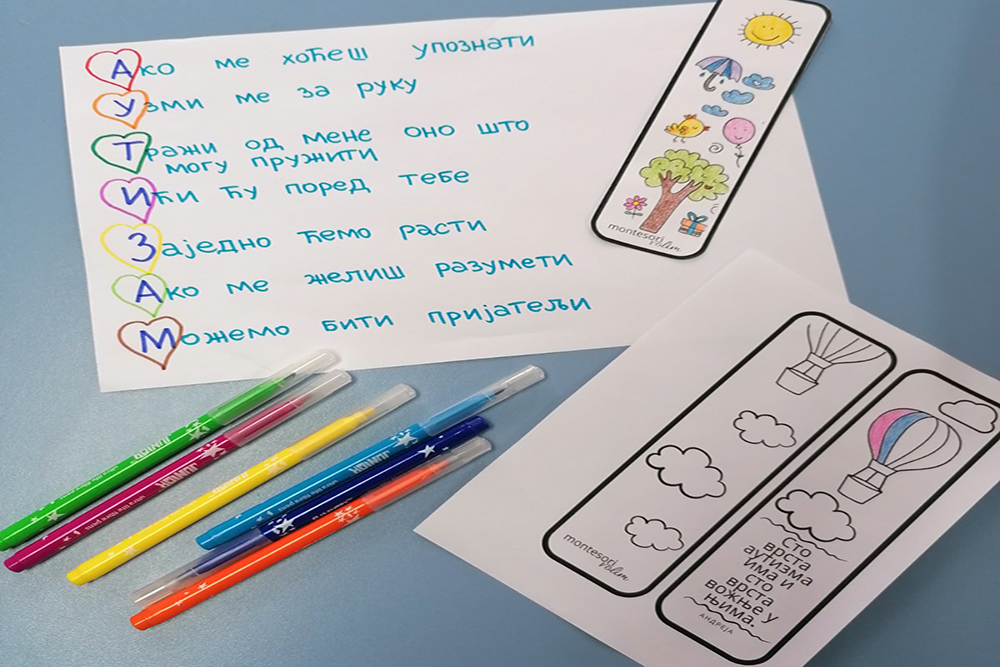 Ако ме хоћеш упознати
Узми ме за руку
Тражи од мене оно што
могу пружити
Ићи ћу поред тебе
Заједно ћемо расти
Ако ме желиш разумети
Можемо бити пријатељи
montesori
volim
montesori
volim
Сто
врста
аутизма
има и
сто
врста
вожње у
њима.
АНДРЕЈА
JUNIOR
JUNIOR